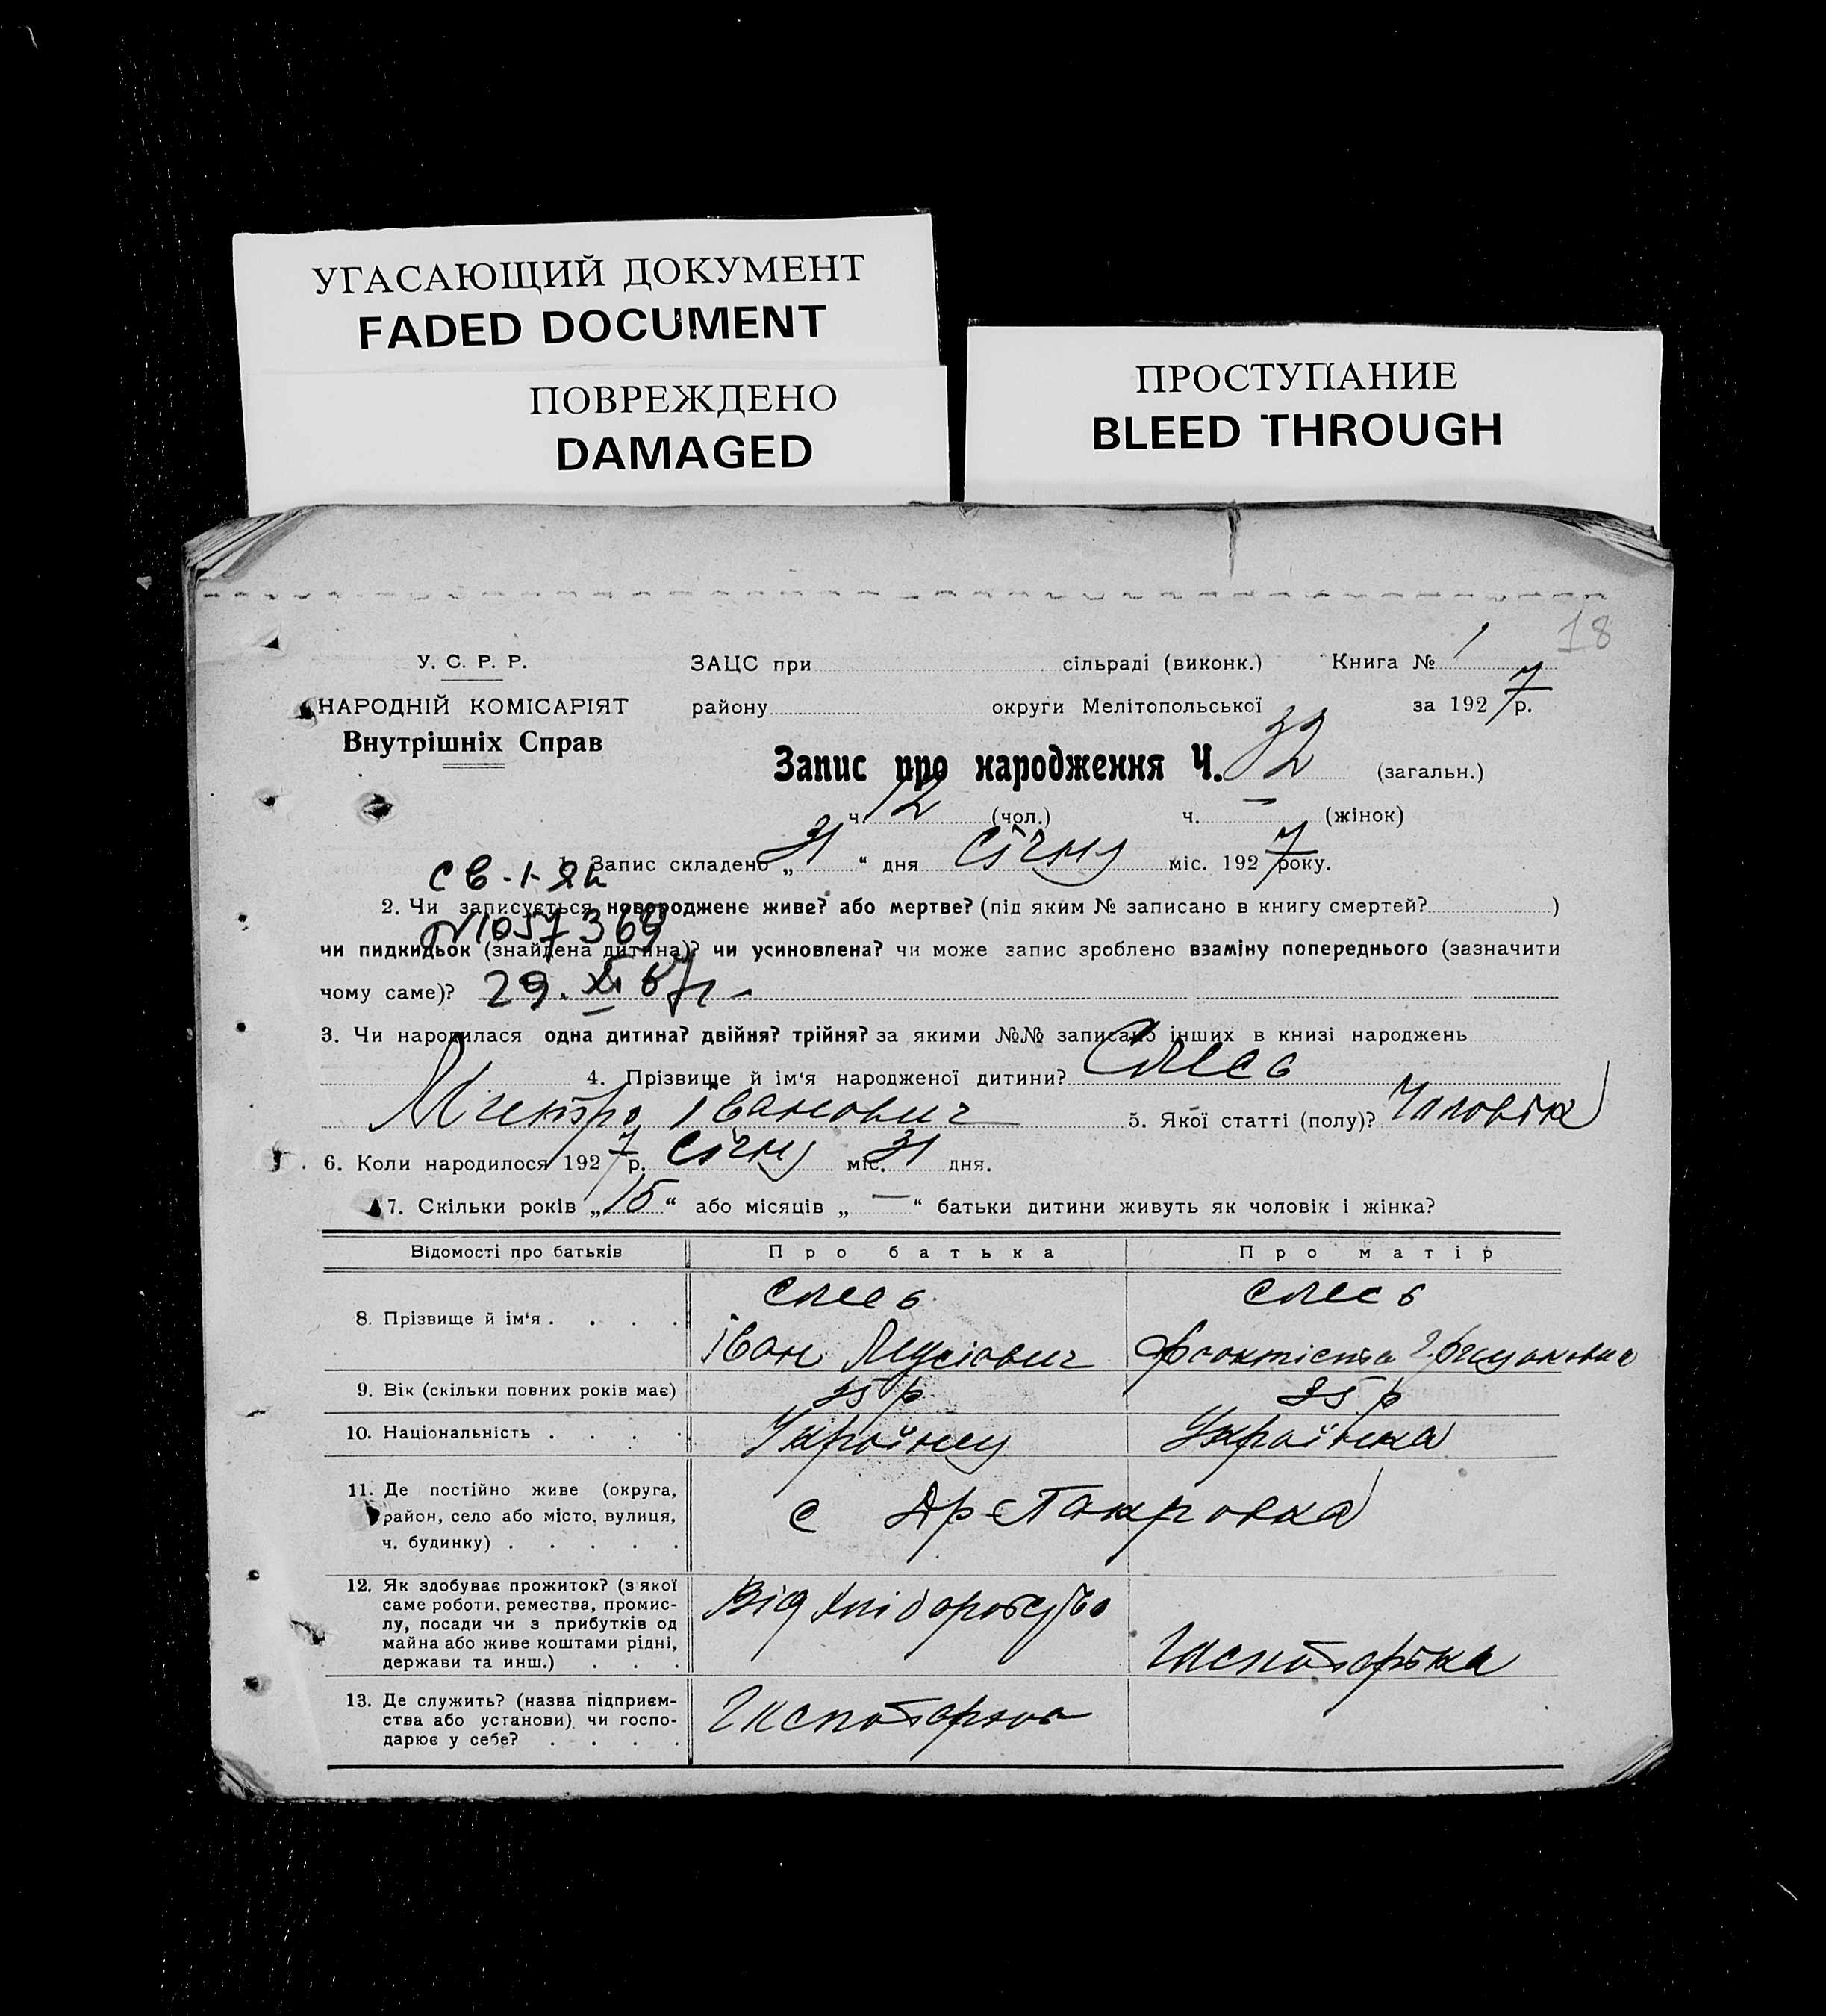 УГАСАЮЩИЙ ДОКУМЕНТ
FADED DOCUMENT
ПОВРЕЖДЕНО
DAMAGED
ПРОСТУПАНИЕ
BLEED THROUGH
18
У. С. Р. Р.
НАРОДНІЙ КОМІСАРІЯТ
Внутрішніх Справ
ЗАЦС при сільраді (виконк.) Книга № 1
району округи Мелітопольської за 1927 р.
Запис про народження Ч. 32 (загальн.)
ч. 12 (чол.) ч. — (жінок)
1. Запис складено „ 31 “ дня Січню міс. 1927 року.
св.
2. Чи записується новороджене живе? або мертве? (під яким № записано в книгу смертей? )
№ 1057369
чи пидкидьок (знайдена дитина)? чи усиновлена? чи може запис зроблено взаміну попереднього (зазначити
чому саме)? 29. XI 67г
3. Чи народилася одна дитина? двійня? трійня? за якими №№ записано інших в книзі народжень
4. Прізвище й ім'я народженої дитини? Слесь
Іванович 5. Якої статті (полу)? Чоловік
6. Коли народилося 1927 р. Січню міс. 31 дня.
7. Скільки років „ 15 “ або місяців „ — “ батьки дитини живуть як чоловік і жінка?
Відомості про батьків Про батька Про матір
8. Прізвище й ім'я . . . . Слесь Слесь
Іван
9. Вік (скільки повних років має) 35 р 35 р
10. Національність . . . . Українец Українка
11. Де постійно живе (округа,
район, село або місто, вулиця,
ч. будинку) . . . . .
с
12. Як здобуває прожиток? (з якої
саме роботи, ремества, промис-
лу, посади чи з прибутків од
майна або живе коштами рідні,
держави та инш.) . . .
Від хліборобства
13. Де служить? (назва підприєм-
ства або установи) чи госпо-
дарює у себе? . . . .